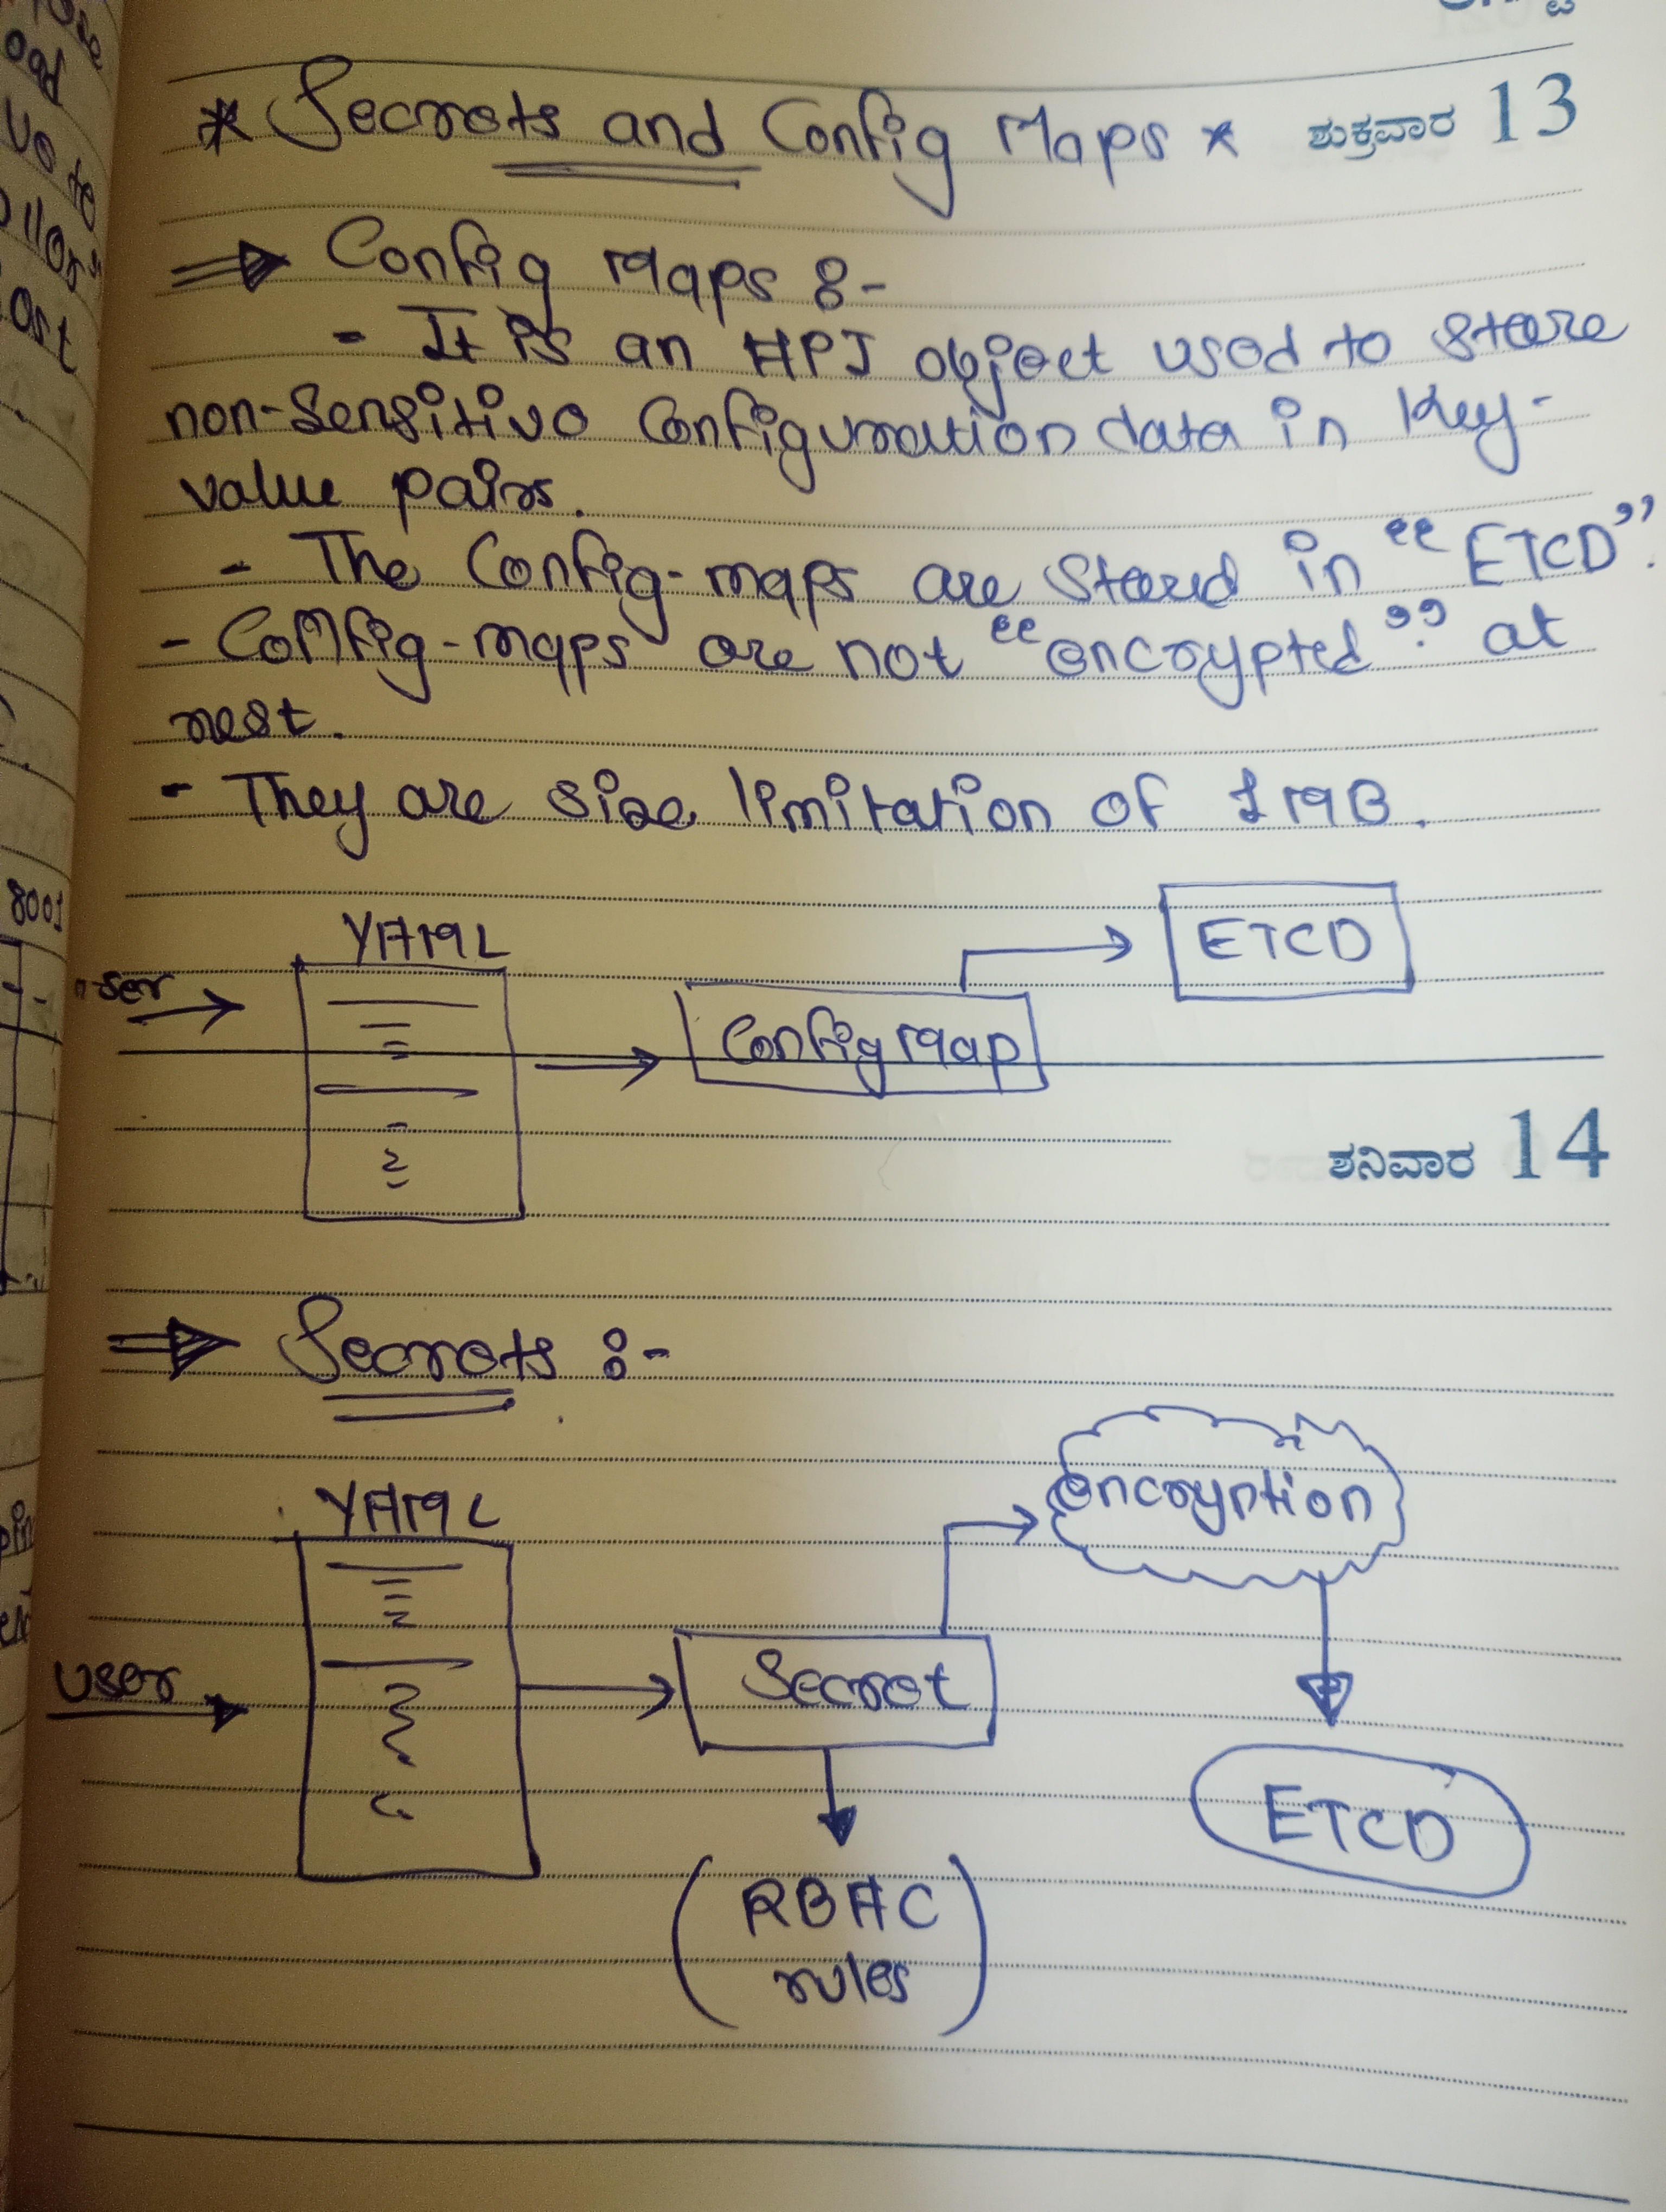 * Secrets and Config Maps *
ಶುಕ್ರವಾರ 13
⇒ Config Maps :-
- It is an API object used to store
non-sensitive configuration data in key-
value pairs.
- The Config-maps are stored in "ETCD".
- Config-maps are not "encrypted" at
rest.
- They are size limitation of 1 MB.
YAML
ETCD
Config Map
ಶನಿವಾರ 14
⇒ Secrets :-
encryption
YAML
user
Secret
ETCD
(RBAC
rules)
8001